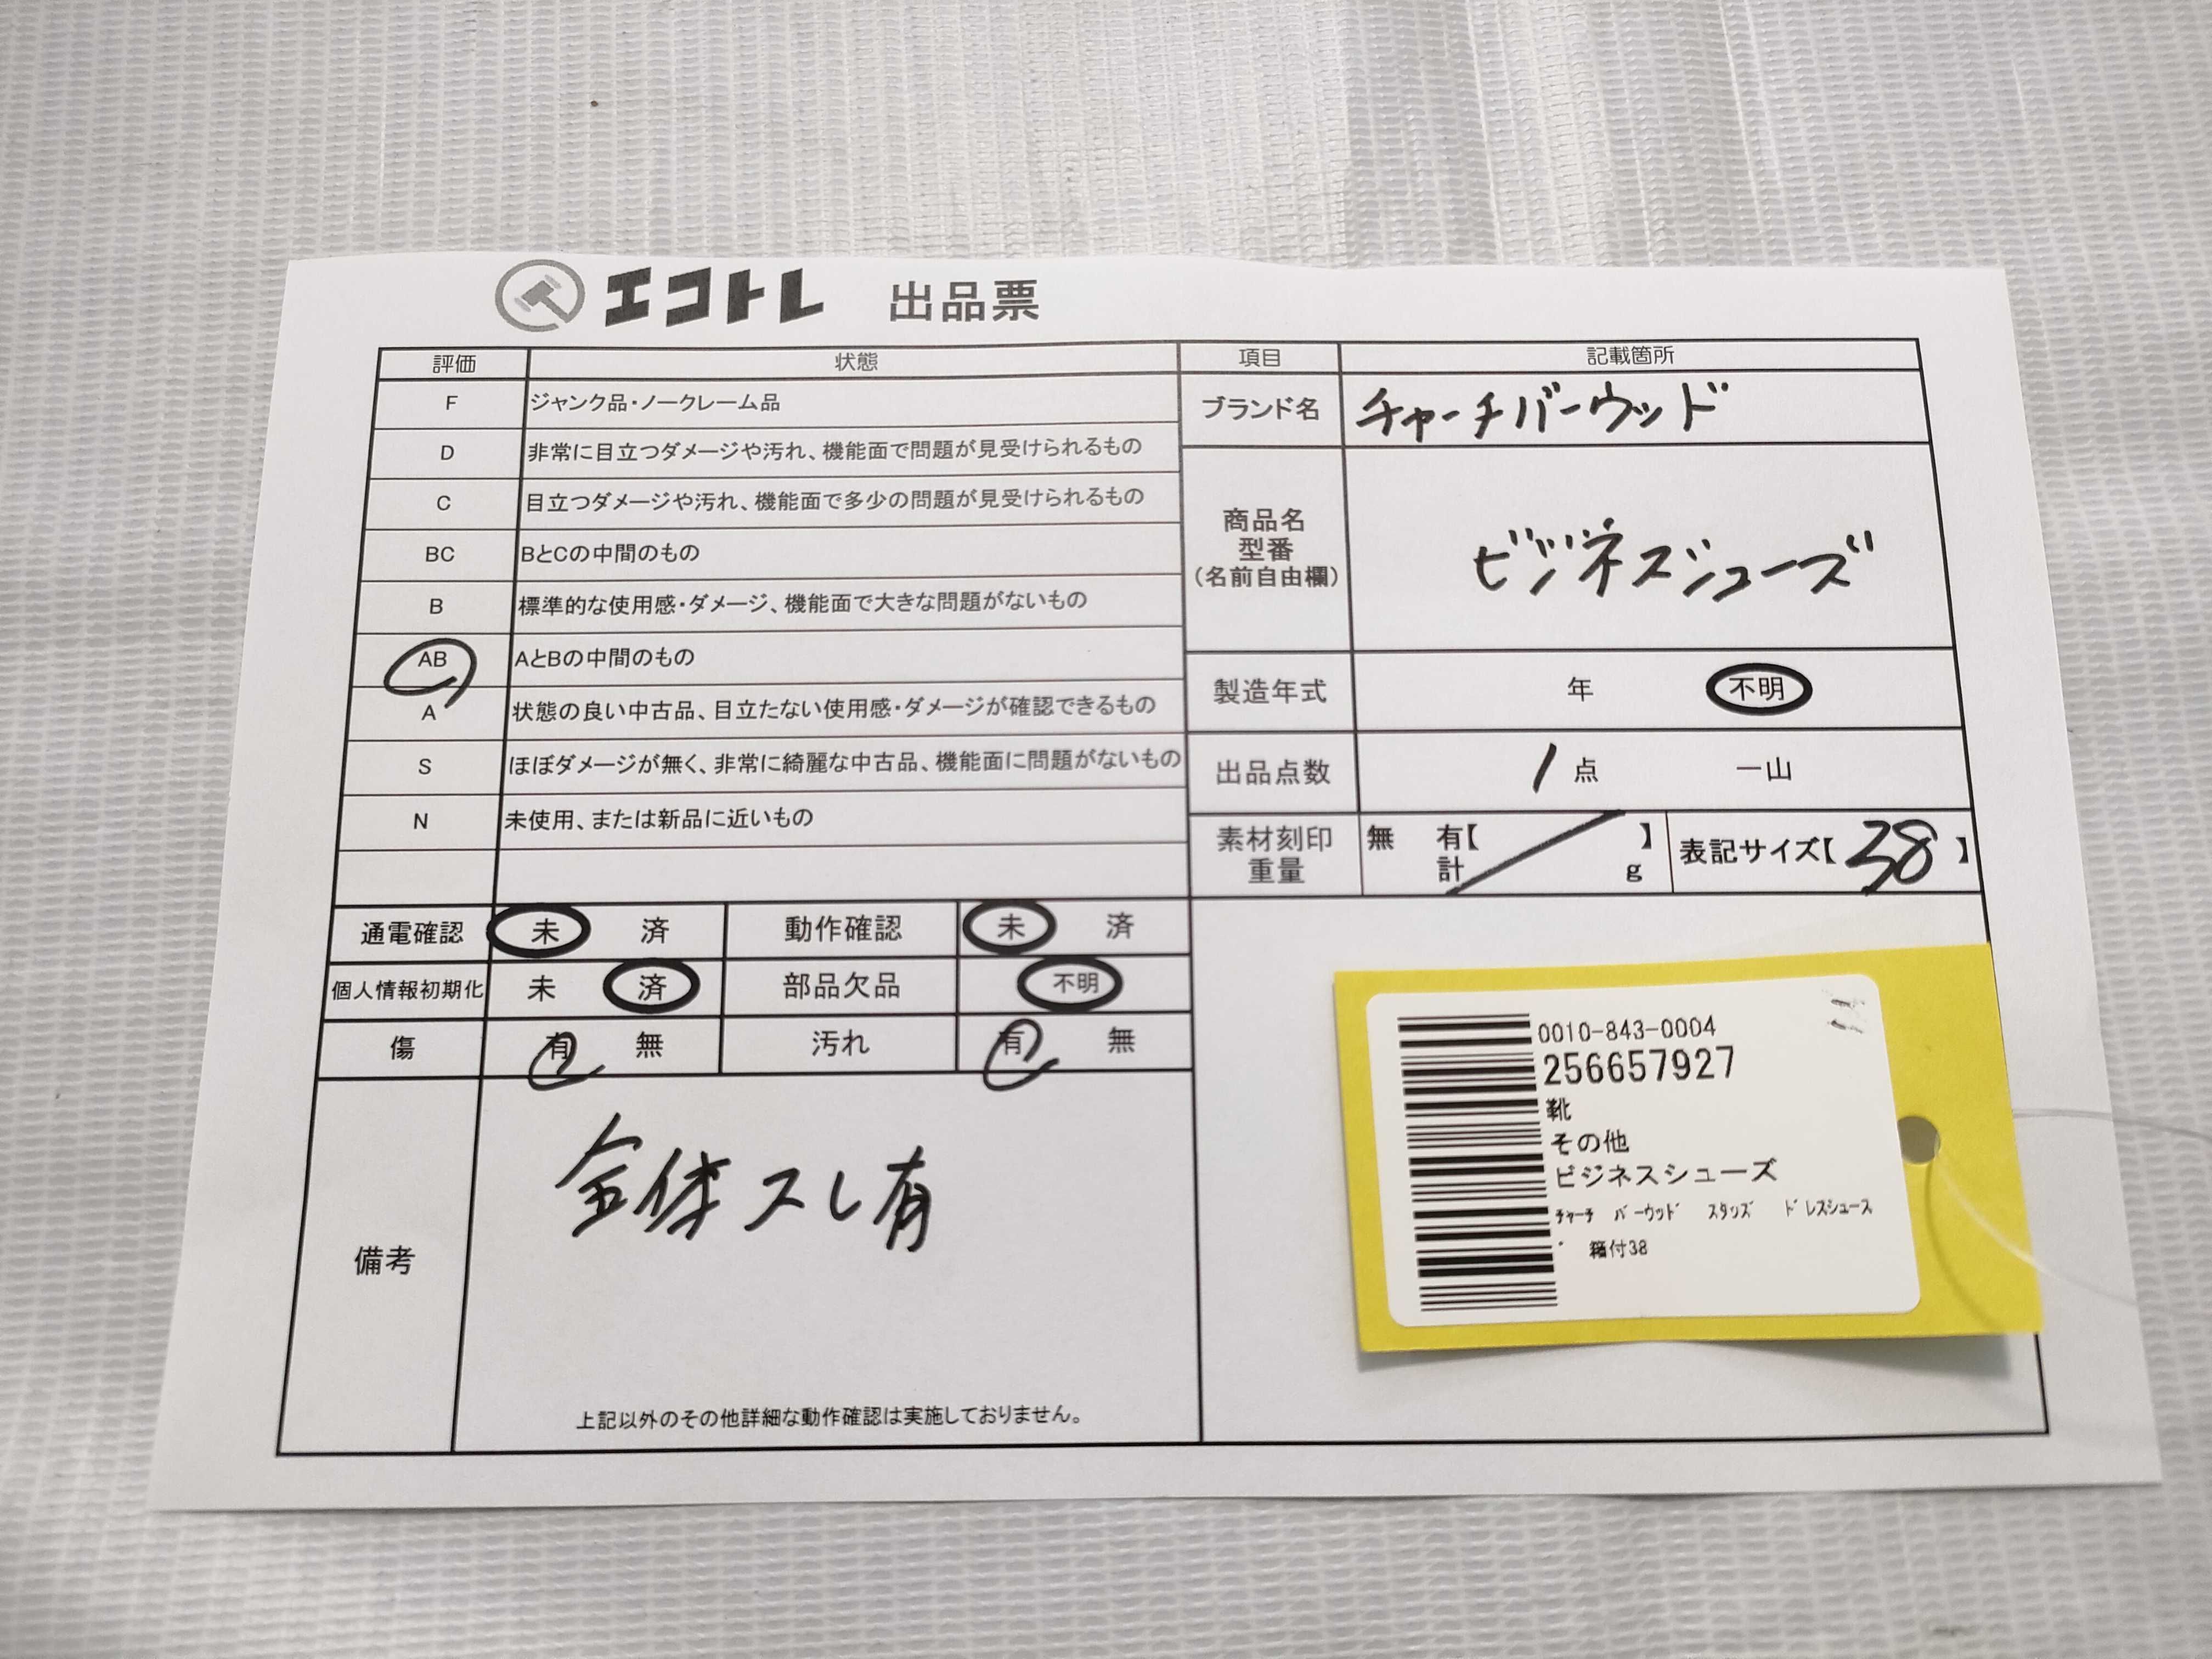 エコトレ 出品票
評価 状態 項目 記載箇所
F ジャンク品・ノークレーム品
D 非常に目立つダメージや汚れ、機能面で問題が見受けられるもの
C 目立つダメージや汚れ、機能面で多少の問題が見受けられるもの
BC BとCの中間のもの
B 標準的な使用感・ダメージ、機能面で大きな問題がないもの
AB AとBの中間のもの
A 状態の良い中古品、目立たない使用感・ダメージが確認できるもの
S ほぼダメージが無く、非常に綺麗な中古品、機能面に問題がないもの
N 未使用、または新品に近いもの
ブランド名 チャーチバーウッド
商品名
型番
(名前自由欄)
ビジネスシューズ
製造年式 年 不明
出品点数 1 点 一山
素材刻印
重量
無 有【 】
計 g
表記サイズ【 38 】
通電確認 未 済 動作確認 未 済
個人情報初期化 未 済 部品欠品 不明
傷 有 無 汚れ 有 無
備考
全体スレ有
上記以外のその他詳細な動作確認は実施しておりません。
0010-843-0004
256657927
靴
その他
ビジネスシューズ
ﾁｬｰﾁ ﾊﾞｰｳｯﾄﾞ ｽﾀｯｽﾞ ﾄﾞﾚｽｼｭｰｽ
ﾞ 箱付38